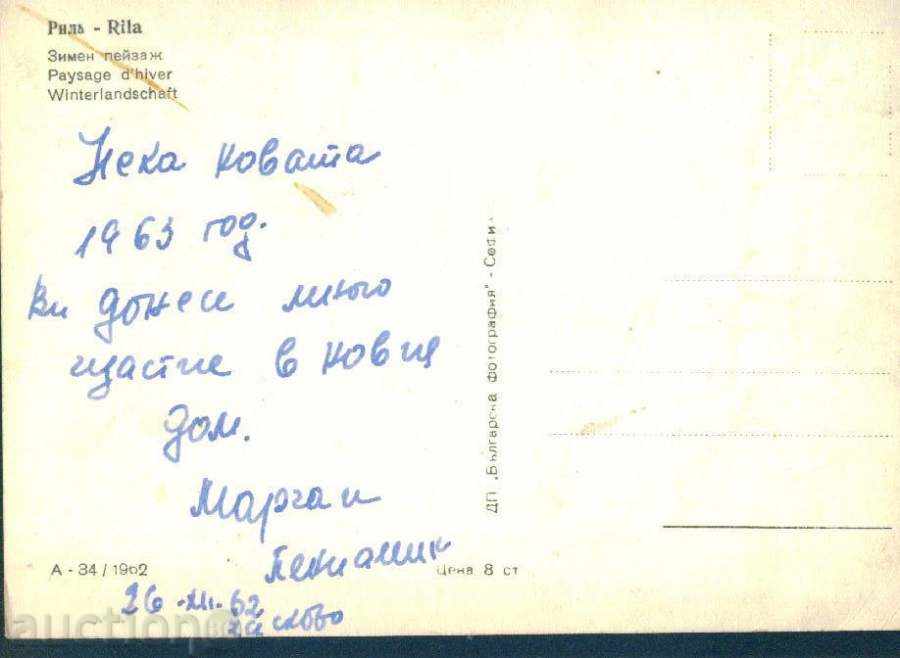 Рилъ - Rila
Зимен пейзаж
Paysage d'hiver
Winterlandschaft
Нека новата
1963 год.
Ви донесе много
щастие в новия
дом.
Марга и
26-XII-62
Хасково
А - 34 / 1962
Цена 8 ст
ДП „Българска фотография" - София
auction